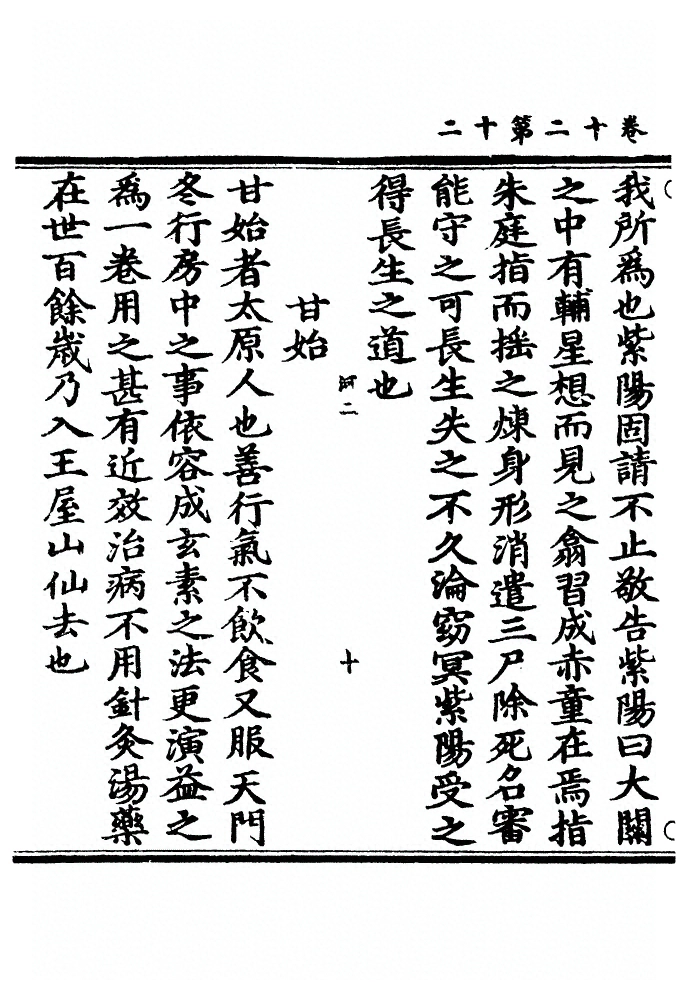 卷十二第十二
我所爲也紫陽固請不止敬告紫陽曰大關
之中有輔星想而見之翕習成赤童在焉指
朱庭指而摇之煉身形消遣三尸除死名審
能守之可長生失之不久淪窈冥紫陽受之
得長生之道也
十
甘始
甘始者太原人也善行氣不飲食又服天門
冬行房中之事依容成玄素之法更演益之
爲一卷用之甚有近效治病不用針灸湯藥
在世百餘歲乃入王屋山仙去也